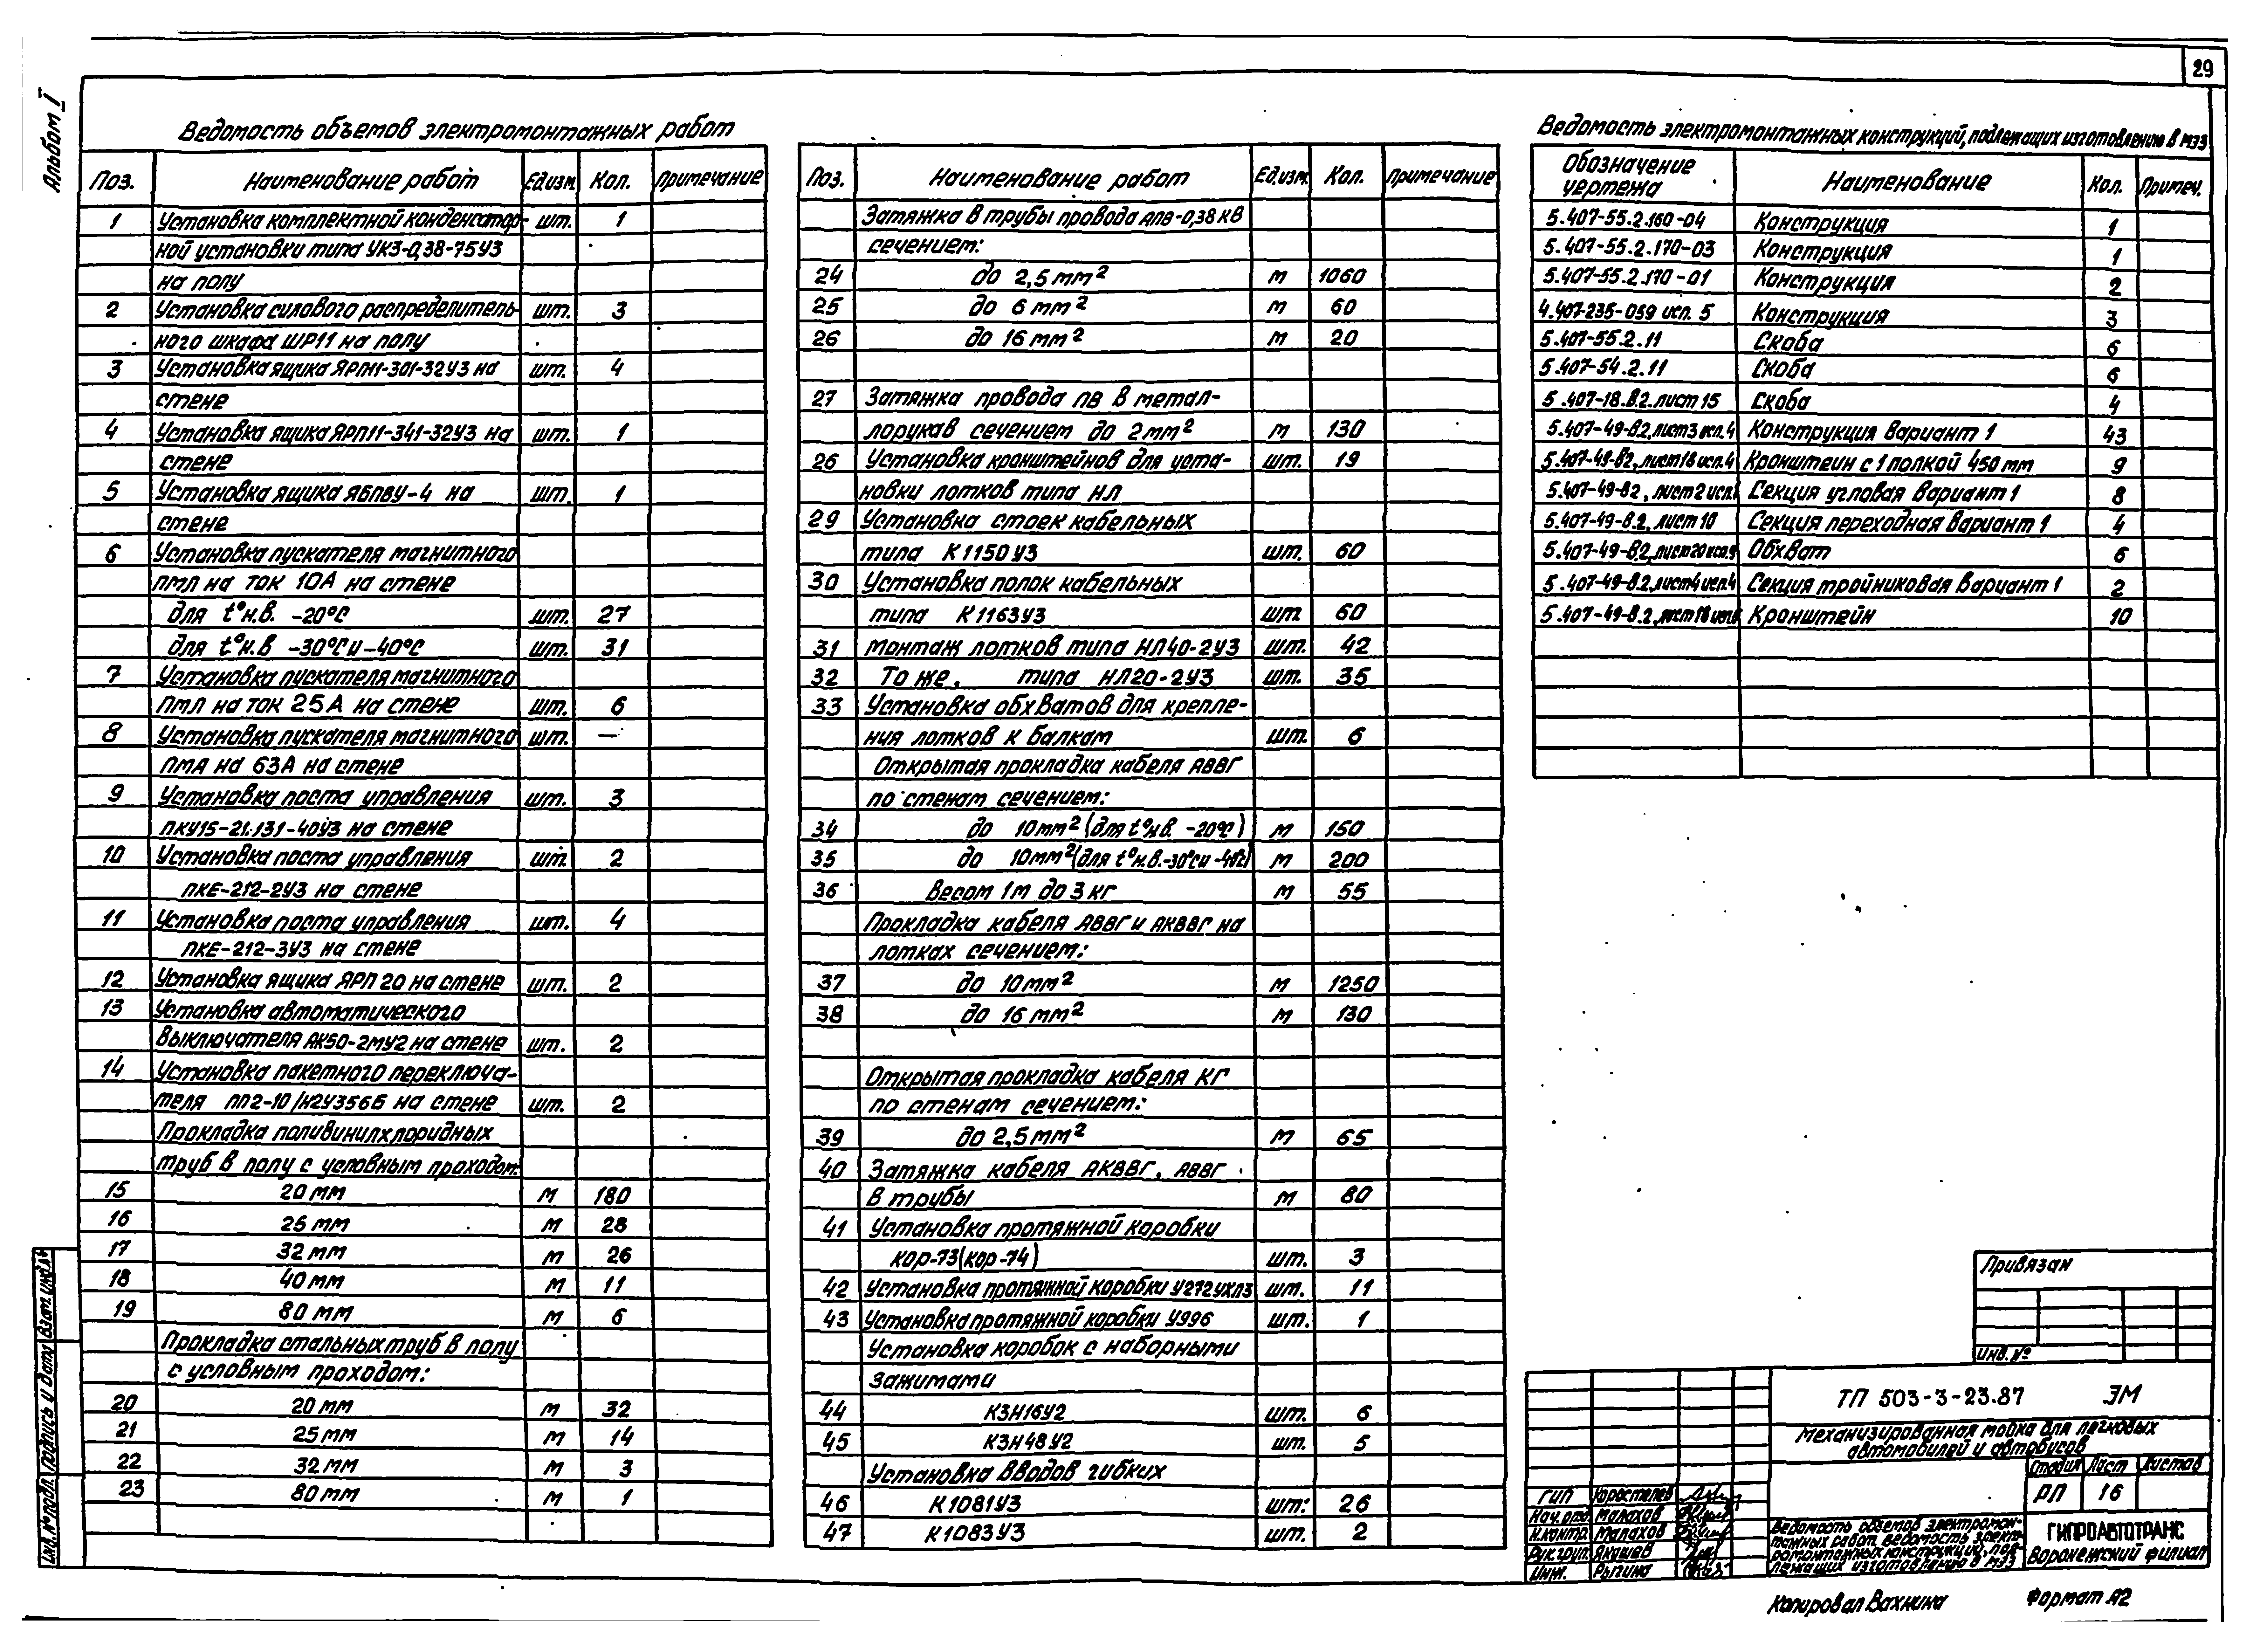 29
Альбом I
Ведомость объемов электромонтажных работ
Поз. Наименование работ Ед.изм. Кол. Примечание
1 Установка комплектной конденсатор- шт. 1
ной установки типа УК3-0,38-75У3
на полу
2 Установка силового распределитель- шт. 3
ного шкафа ШР11 на полу
3 Установка ящика ЯРП11-301-32У3 на шт. 4
стене
4 Установка ящика ЯРП11-341-32У3 на шт. 1
стене
5 Установка ящика ЯБПВУ-4 на шт. 1
стене
6 Установка пускателя магнитного
ПМЛ на ток 10А на стене
для t°н.в. -20°С шт. 27
для t°н.в -30°С и -40°С шт. 31
7 Установка пускателя магнитного
ПМЛ на ток 25А на стене шт. 6
8 Установка пускателя магнитного шт. —
ПМА на 63А на стене
9 Установка поста управления шт. 3
ПКУ15-21.131-40У3 на стене
10 Установка поста управления шт. 2
ПКЕ-212-2У3 на стене
11 Установка поста управления шт. 4
ПКЕ-212-3У3 на стене
12 Установка ящика ЯРП 20 на стене шт. 2
13 Установка автоматического
выключателя АК50-2МУ2 на стене шт. 2
14 Установка пакетного переключа-
теля ПП2-10/Н2У356Б на стене шт. 2
Прокладка поливинилхлоридных
труб в полу с условным проходом:
15 20 мм м 180
16 25 мм м 28
17 32 мм м 26
18 40 мм м 11
19 80 мм м 6
Прокладка стальных труб в полу
с условным проходом:
20 20 мм м 32
21 25 мм м 14
22 32 мм м 3
23 80 мм м 1
Поз. Наименование работ Ед.изм. Кол. Примечание
Затяжка в трубы провода АПВ-0,38 кВ
сечением:
24 до 2,5 мм² м 1060
25 до 6 мм² м 60
26 до 16 мм² м 20
27 Затяжка провода ПВ в метал-
лорукав сечением до 2 мм² м 130
26 Установка кронштейнов для уста- шт. 19
новки лотков типа НЛ
29 Установка стоек кабельных
типа К1150У3 шт. 60
30 Установка полок кабельных
типа К1163У3 шт. 60
31 Монтаж лотков типа НЛ40-2У3 шт. 42
32 То же, типа НЛ20-2У3 шт. 35
33 Установка обхватов для крепле-
ния лотков к балкам шт. 6
Открытая прокладка кабеля АВВГ
по стенам сечением:
34 до 10 мм² (для t°н.в. -20°С) м 150
35 до 10 мм² (для t°н.в.-30°С и -40°С) м 200
36 Весом 1м до 3 кг м 55
Прокладка кабеля АВВГ и АКВВГ на
лотках сечением:
37 до 10 мм² м 1250
38 до 16 мм² м 130
Открытая прокладка кабеля КГ
по стенам сечением:
39 до 2,5 мм² м 65
40 Затяжка кабеля АКВВГ, АВВГ
в трубы м 80
41 Установка протяжной коробки
КОР-73(КОР-74) шт. 3
42 Установка протяжной коробки У272УХЛ3 шт. 11
43 Установка протяжной коробки У996 шт. 1
Установка коробок с наборными
зажимами
44 КЗН16У2 шт. 6
45 КЗН48У2 шт. 5
Установка вводов гибких
46 К1081У3 шт. 26
47 К1083У3 шт. 2
Ведомость электромонтажных конструкций, подлежащих изготовлению в МЭЗ
Обозначение чертежа Наименование Кол. Примеч.
5.407-55.2.160-04 Конструкция 1
5.407-55.2.170-03 Конструкция 1
5.407-55.2.170-01 Конструкция 2
4.407-235-059 исп. 5 Конструкция 3
5.407-55.2.11 Скоба 6
5.407-54.2.11 Скоба 6
5.407-18.В.2.лист 15 Скоба 4
5.407-49-В.2, лист 3 исп.4 Конструкция вариант 1 43
5.407-49-В2, лист 18 исп.4 Кронштейн с 1 полкой 450 мм 9
5.407-49-В2, лист 2 исп.1 Секция угловая вариант 1 8
5.407-49-В.2, лист 10 Секция переходная вариант 1 4
5.407-49-В.2, лист 20 исп.9 Обхват 6
5.407-49-В.2, лист 4 исп.4 Секция тройниковая вариант 1 2
5.407-49-В.2, лист 18 Кронштейн 10
Привязан
Инв. №
ТП 503-3-23.87 ЭМ
Механизированная мойка для легковых
автомобилей и автобусов
Стадия Лист Листов
РП 16
ГИП Коростелев
Нач. отд. Малахов
Н.контр. Малахов
Рук.груп. Акашев
Инж. Рыгина
Ведомость объемов электромон-
тажных работ. Ведомость элект-
ромонтажных конструкций, под-
лежащих изготовлению в МЭЗ
ГИПРОАВТОТРАНС
Воронежский филиал
Копировал Вахнина Формат А2
Инв.№ подл. Подпись и дата Взам.инв.№